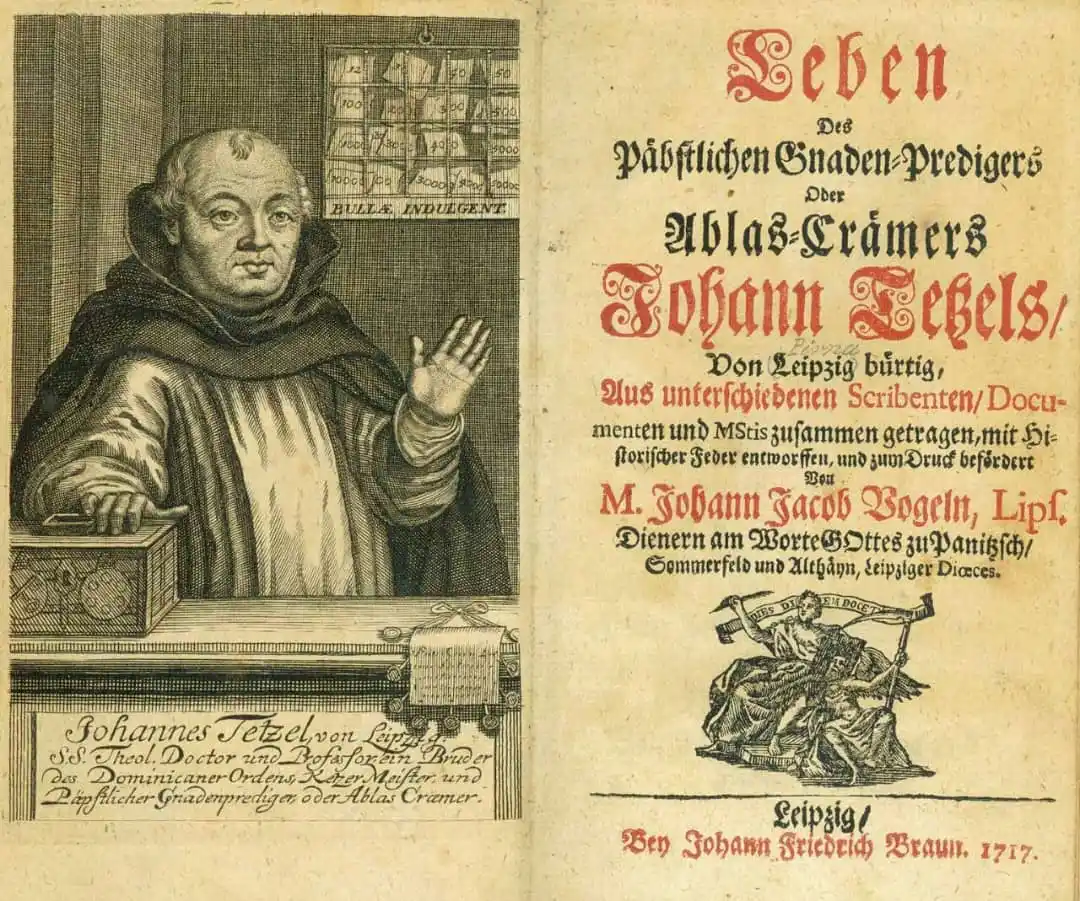 12 50 50
100 300
10000 100 3000 9000
BULLÆ INDULGENT.
Johannes Tetzel, von Leipzig.
S.S. Theol. Doctor und Profaſsor, ein Bruder
des Dominicaner Ordens, Kezer Meiſter und
Päpſtlicher Gnadenprediger, oder Ablas Cræmer.
Leben
Des
Päbſtlichen Gnaden-Predigers
Oder
Ablas-Crämers
Johann Tetzels/
Pirna
Von Leipzig bürtig,
Aus unterſchiedenen Scribenten/ Docu-
menten und MStis zuſammen getragen, mit Hi-
ſtoriſcher Feder entworffen, und zum Druck befördert
Von
M. Johann Jacob Vogeln, Lipſ.
Dienern am Worte GOttes zu Panitzſch/
Sommerfeld und Althäyn, Leipziger Diœces.
DIES DIEM DOCET
Leipzig/
Bey Johann Friedrich Braun. 1717.